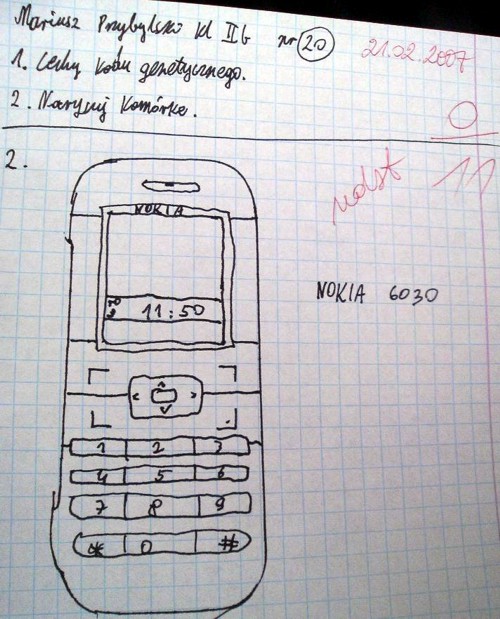 Mariusz Przybylski kl II b nr 20
21.02.2007
1. Cechy kodu genetycznego.
2. Narysuj komórkę.
0
11
ndst
2.
NOKIA
11:50
NOKIA 6030
1 2 3
4 5 6
7 8 9
* 0 #